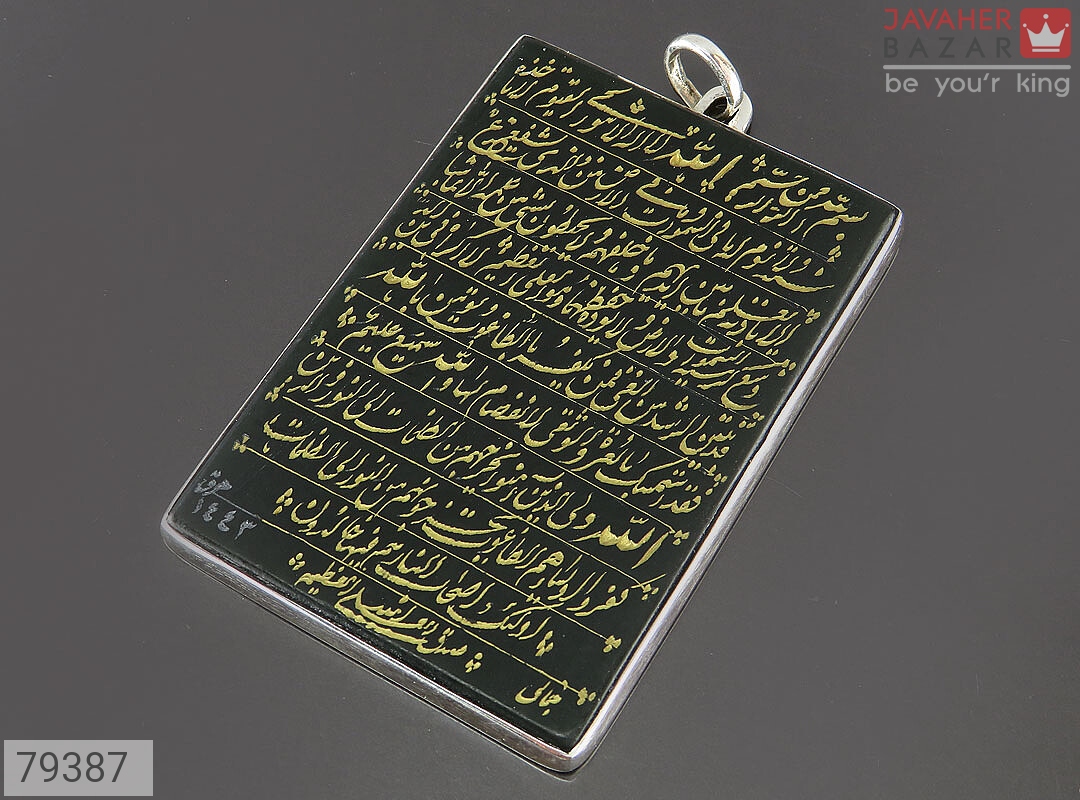 JAVAHER
BAZAR
be you'r king
بسم الله الرحمن الرحیم الله لا اله الا هو الحی القیوم لا تاخذه
سنة و لا نوم له ما فی السموات و ما فی الارض من ذالذی یشفع عنده
الا باذنه یعلم ما بین ایدیهم و ما خلفهم و لا یحیطون بشیئ من علمه الا بما شاء
وسع کرسیه السموات و الارض و لا یوده حفظهما و هو العلی العظیم لا اکراه فی الدین
قد تبین الرشد من الغی فمن یکفر بالطاغوت و یومن بالله
فقد استمسک بالعروة الوثقی لا انفصام لها و الله سمیع علیم
الله ولی الذین آمنوا یخرجهم من الظلمات الی النور و الذین
کفروا اولیاء هم الطاغوت یخرجونهم من النور الی الظلمات
اولئک اصحاب النار هم فیها خالدون
صدق الله العلی العظیم
جمالی
١٤٤٣
79387